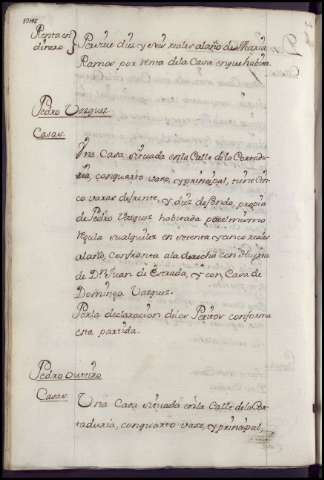 Renta en
dinero
Percive diez y nuebe reales al año de Maria
Ramos por renta de la Casa en que habita.
Pedro Vazquez
Casas.
Una Casa situada en la Calle de la Corredu
ria, con quarto vaxo, y principal, tiene cin
co varas de frente, y diez de fondo, propia
de Pedro Vazquez habitada por el mismo
regula su alquiler en setenta y cinco reales
al año, confronta a la derecha con
de Dn Juan de Estrada, y con Casa de
Dominga Vazquez.
Por la declaracion de los Peritos conforma
esta partida.
Pedro
Casas
Una Casa situada en la Calle de la Cor
taduria, con quarto vaxo, y principal,